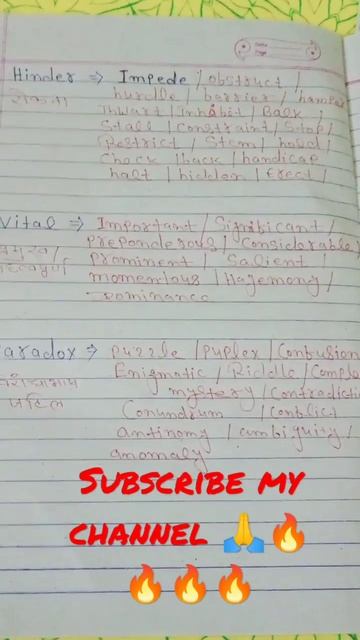 Hinder ⇒ Impede / obstruct /
रोकना hurdle / barrier / hamper
Thwart / Inhabit / Balk /
Stall / Constraint / Stop /
Restrict / Stem / hold /
Chock / hack / handicap
halt / hidden / Erect /
Vital ⇒ Important / Significant /
preponderous / Considerable /
prominent / Salient /
momentous / Hegemony /
Prominance
aradox ⇒ puzzle / puplex / Confusion
Enigmatic / Riddle / Comple
mystery / Contradictio
जटिल
Conundrum / Conflict
antinomy / ambiguity /
anomaly
SUBSCRIBE MY
CHANNEL 🙏🔥
🔥🔥🔥